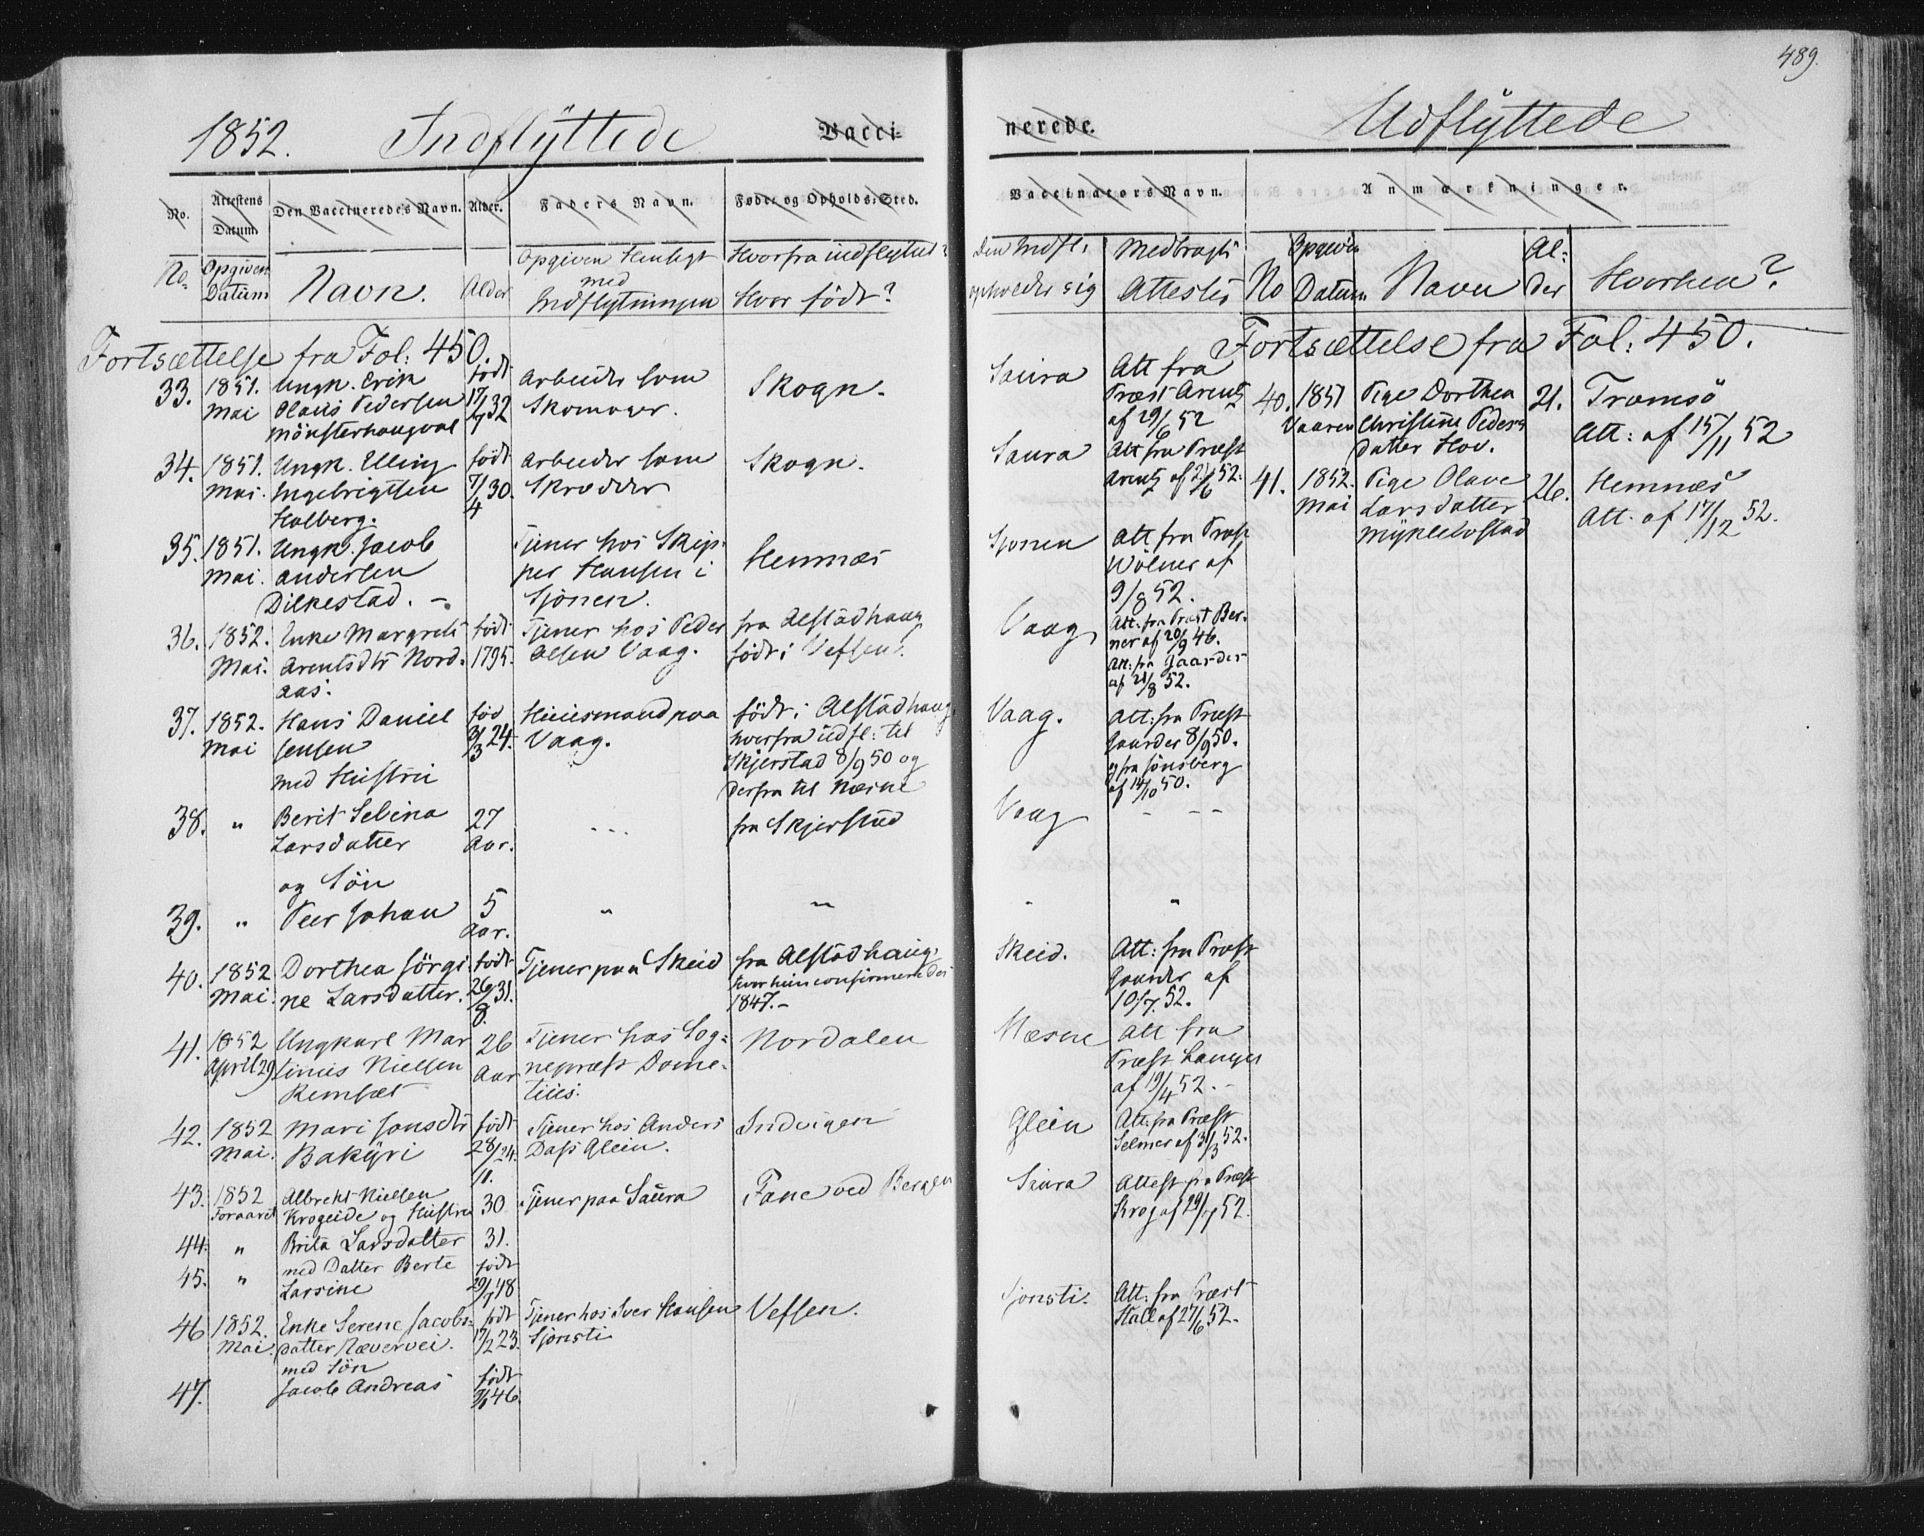 489.
1852. Indflyttede Vacci-
nerede. Udflyttede
No. Attestens Datum. Den Vaccineredes Navn. Alder. Faders Navn. Føde- og Opholds-Sted.
Vaccinators Navn. Anmærkninger.
No. Opgiven Datum Navn. Alder Opgiven Henligt med Indflytningen Hvorfra indflyttet? Hvor født?
Den Indfl: opholder sig Medbragt Attest No Opgiven Datum Navn Al-der Hvorhen?
Fortsættelse fra Fol: 450.
33. 1851. Mai Ungk. Erik Olaus Pedersen Mönsterhaugval født 17/7 32 Arbeider som Skomager. Skogn. Saura Att fra Præst Arentz af 29/6 52
34. 1851. Mai. Ungk. Elling Ingebrigtsen Holberg. født 7/4 30. Arbeider som Skrædder Skogn. Saura Att fra Præst Arentz af 2/6 52.
35. 1851. Mai. Ungk. Jacob Andersen Dilkestad. – Tjener hos Skipper Hansen i Sjönen. Hemnæs Sjonen Att. fra Præst Wölner af 9/8 52.
36. 1852. Mai. Enke Margrete Arentsdtr Nordaas. født 1795. Tjener hos Peder Olsen Vaag. fra Alstadhaug født i Vefsen. Vaag, Att. fra Præst Berner af 20/9 46. Att: fra Gaarder af 21/8 52.
37. 1852. Mai Hans Daniel Jensen med Hustru fød 3/3 24. Huusmand paa Vaag. født i Alstadhaug, hvorfra udfl: til Skjerstad 8/9 50 og derfra til Næsne Vaag. Att: fra Præst Gaarder 8/9 50. og fra Jönsberg af 14/10 50.
38. " Berit Selina Larsdatter og Søn 27 Aar. - - - fra Skjerstad Vaag - - -
39. " Peer Johan 5 Aar. " " " "
40. 1852 Mai. Dorthea Jörgine Larsdatter. født 26/8 31. Tjener paa Skeid fra Alstadhaug, hvor hun confirmeredes 1847.– Skeid. Att: fra Præst Gaarder af 10/7 52.
41. 1852 April 29 Ungkarl Martinus Nielsen Remsæt 26 Aar Tjener hos Sognepræst Dometius. Nordalen Næsne Att fra Præst Langes af 19/4 52. –
42. 1852 Mai. Mari Jonsdtr Bakyri født 28/11. 24. Tjener hos Anders Dass Glein. Indvigen Glein Att. fra Præst Selmer af 31/3 52.
43. 1852 Foraaret Albrekt Nielsen Krogeide og Hustru 30 Tjener paa Saura Fane ved Bergen Saura Attest fra Præst Krog af 29/7 52.
44. " Brita Larsdatter 31.
45. " med Datter Berte Larsine født 29/7 48
46 1852. Mai. Enke Serene Jacobsdatter Nævervei. med Søn født 17/2 23. Tjener hos Iver Hansen Sjonsti Vefsen. Sjonsti. Att. fra Præst Hall af 27/6 52.
47. Jacob Andreas født 46.
Fortsættelse fra Fol: 450.
40. 1851 Vaaren Pige Dorthea Christine Pedersdatter Hov. 21. Tromsö Att: af 15/11 52
41. 1852. Mai Pige Olave Larsdatter Myklebostad 26. Hemnæs Att. af 17/12 52.